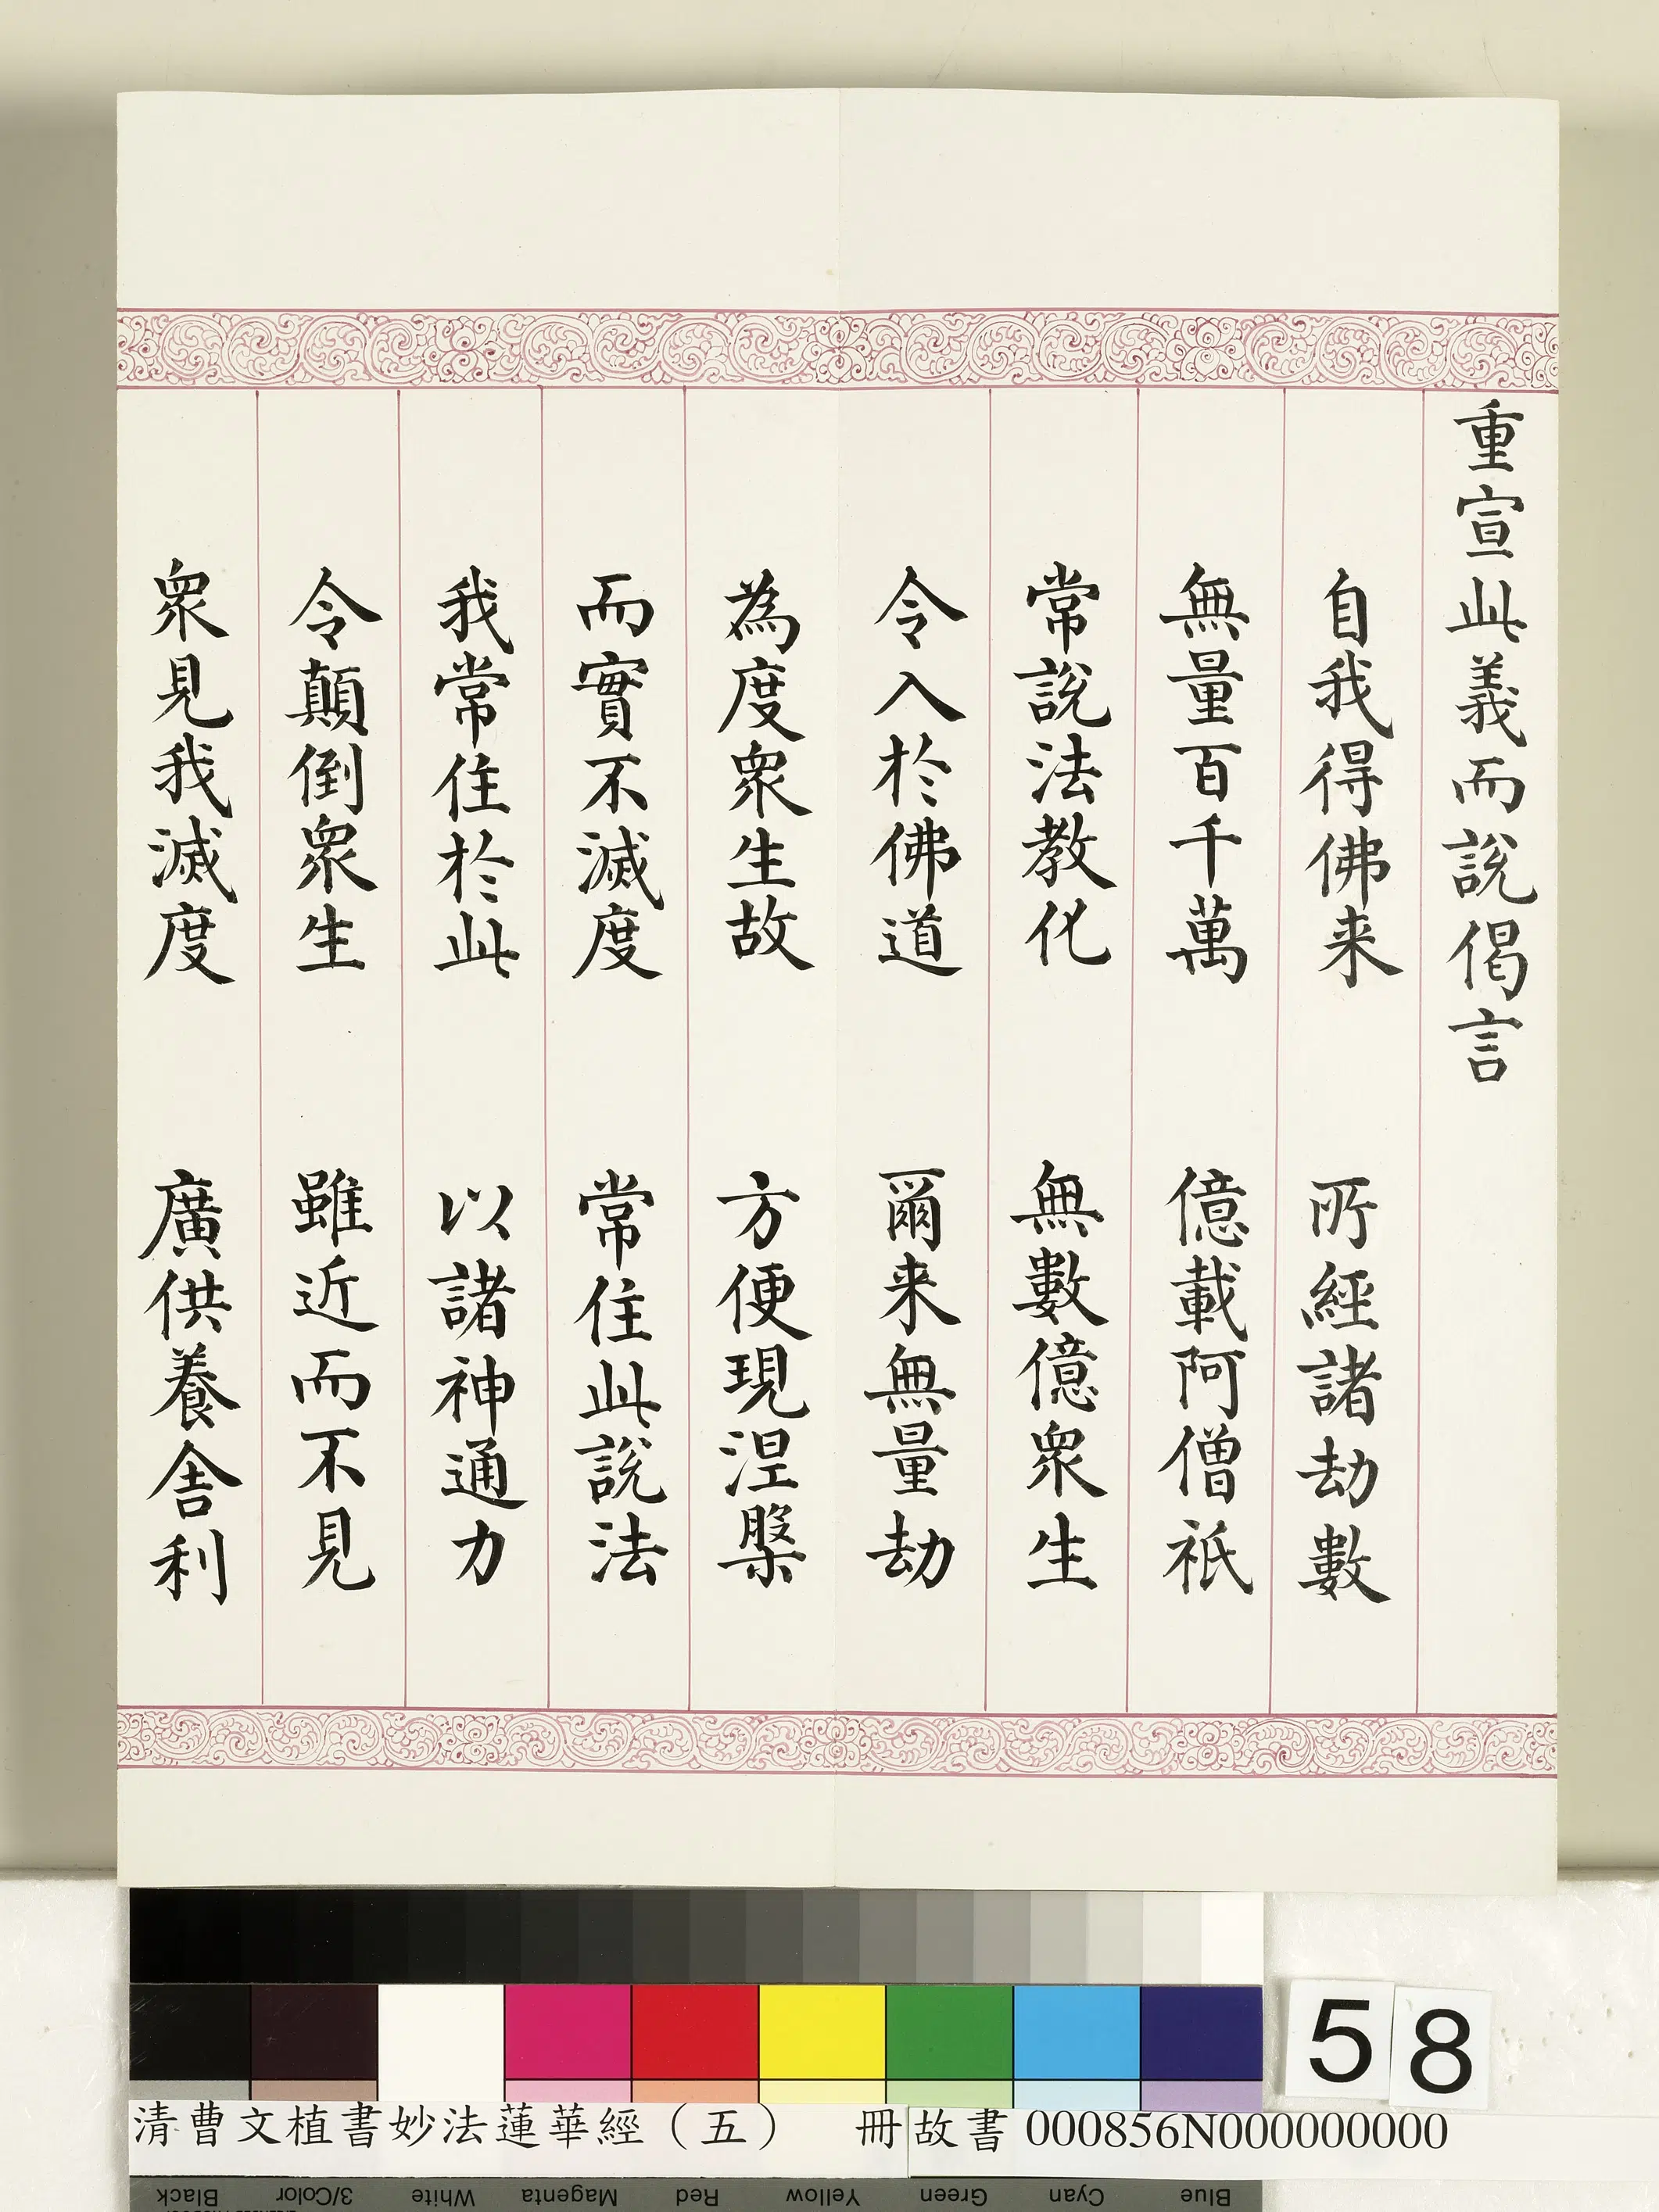 重宣此義而說偈言
自我得佛来　所經諸劫數
無量百千萬　億載阿僧祇
常說法教化　無數億眾生
令入於佛道　爾来無量劫
為度眾生故　方便現涅槃
而實不滅度　常住此說法
我常住於此　以諸神通力
令顛倒眾生　雖近而不見
眾見我滅度　廣供養舍利
58
清曹文植書妙法蓮華經（五）　冊故書 000856N000000000
Black 3/Color White Magenta Red Yellow Green Cyan Blue